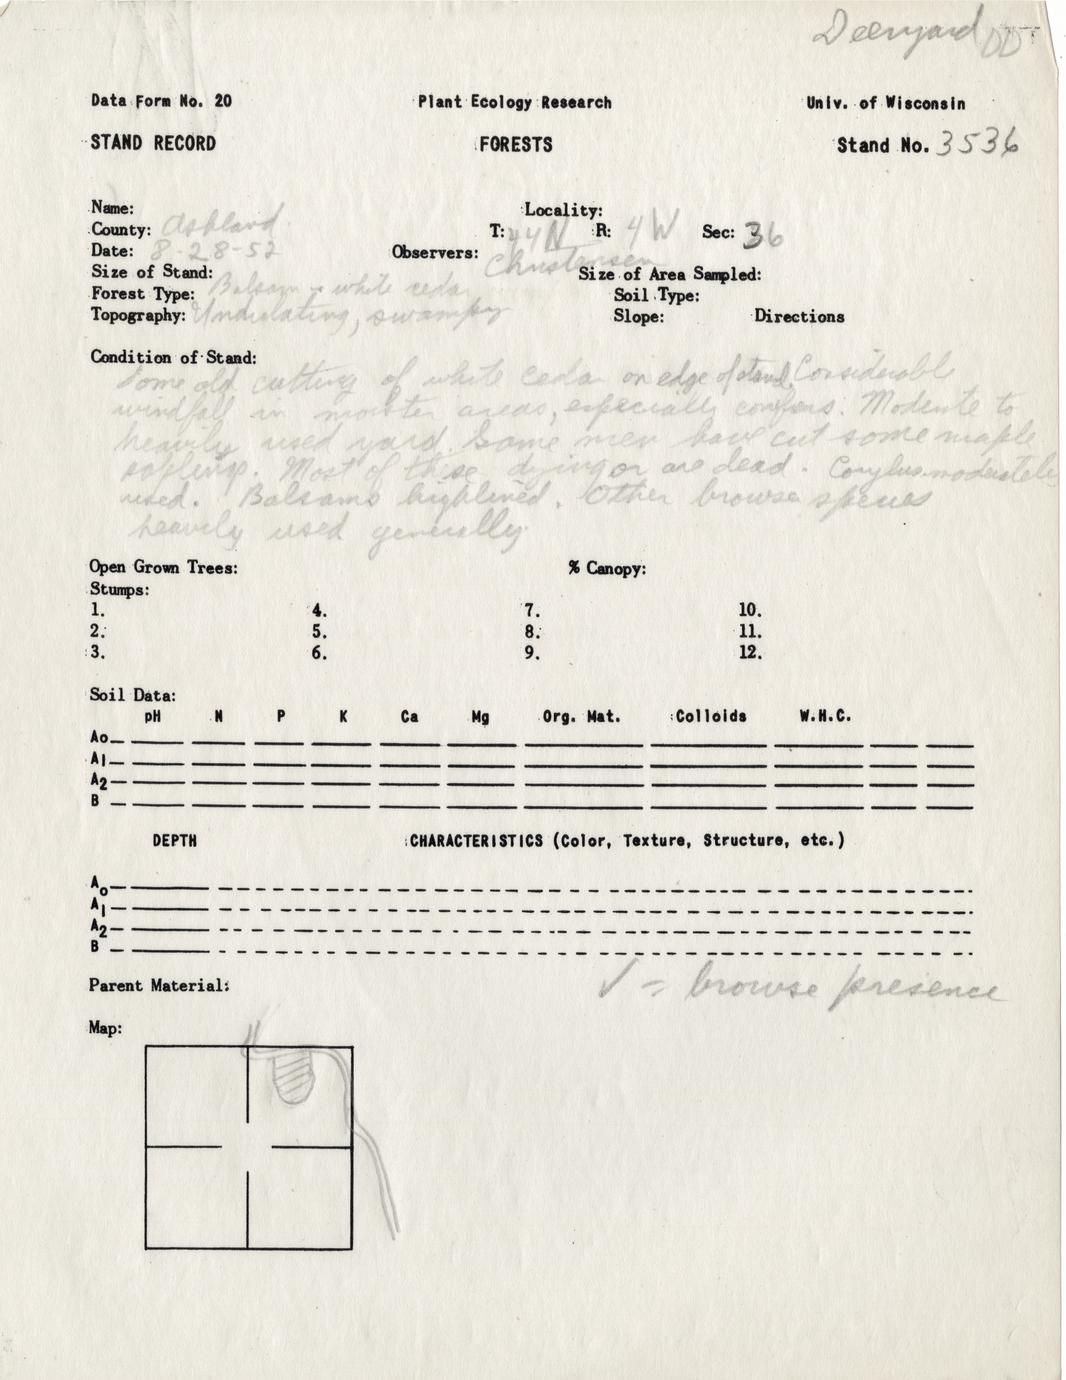 Deeryard DDT
Data Form No. 20 Plant Ecology Research Univ. of Wisconsin
STAND RECORD FORESTS Stand No. 3536
Name: Locality:
County: Ashland T: 44N R: 4W Sec: 36
Date: 8-28-52 Observers: Christensen
Size of Stand: Size of Area Sampled:
Forest Type: Balsam - white cedar Soil Type:
Topography: Undulating, swampy Slope: Directions
Condition of Stand:
Some old cutting of white cedar on edge of stand. Considerable
windfall in moister areas, especially conifers. Moderate to
heavily used yard. Some men have cut some maple
saplings. Most of these dying or are dead. Corylus moderately
used. Balsams highlined. Other browse species
heavily used generally.
Open Grown Trees: % Canopy:
Stumps:
1. 4. 7. 10.
2. 5. 8. 11.
3. 6. 9. 12.
Soil Data:
pH N P K Ca Mg Org. Mat. Colloids W.H.C.
Ao
A1
A2
B
DEPTH CHARACTERISTICS (Color, Texture, Structure, etc.)
Ao
A1
A2
B
✓ = browse presence
Parent Material:
Map: